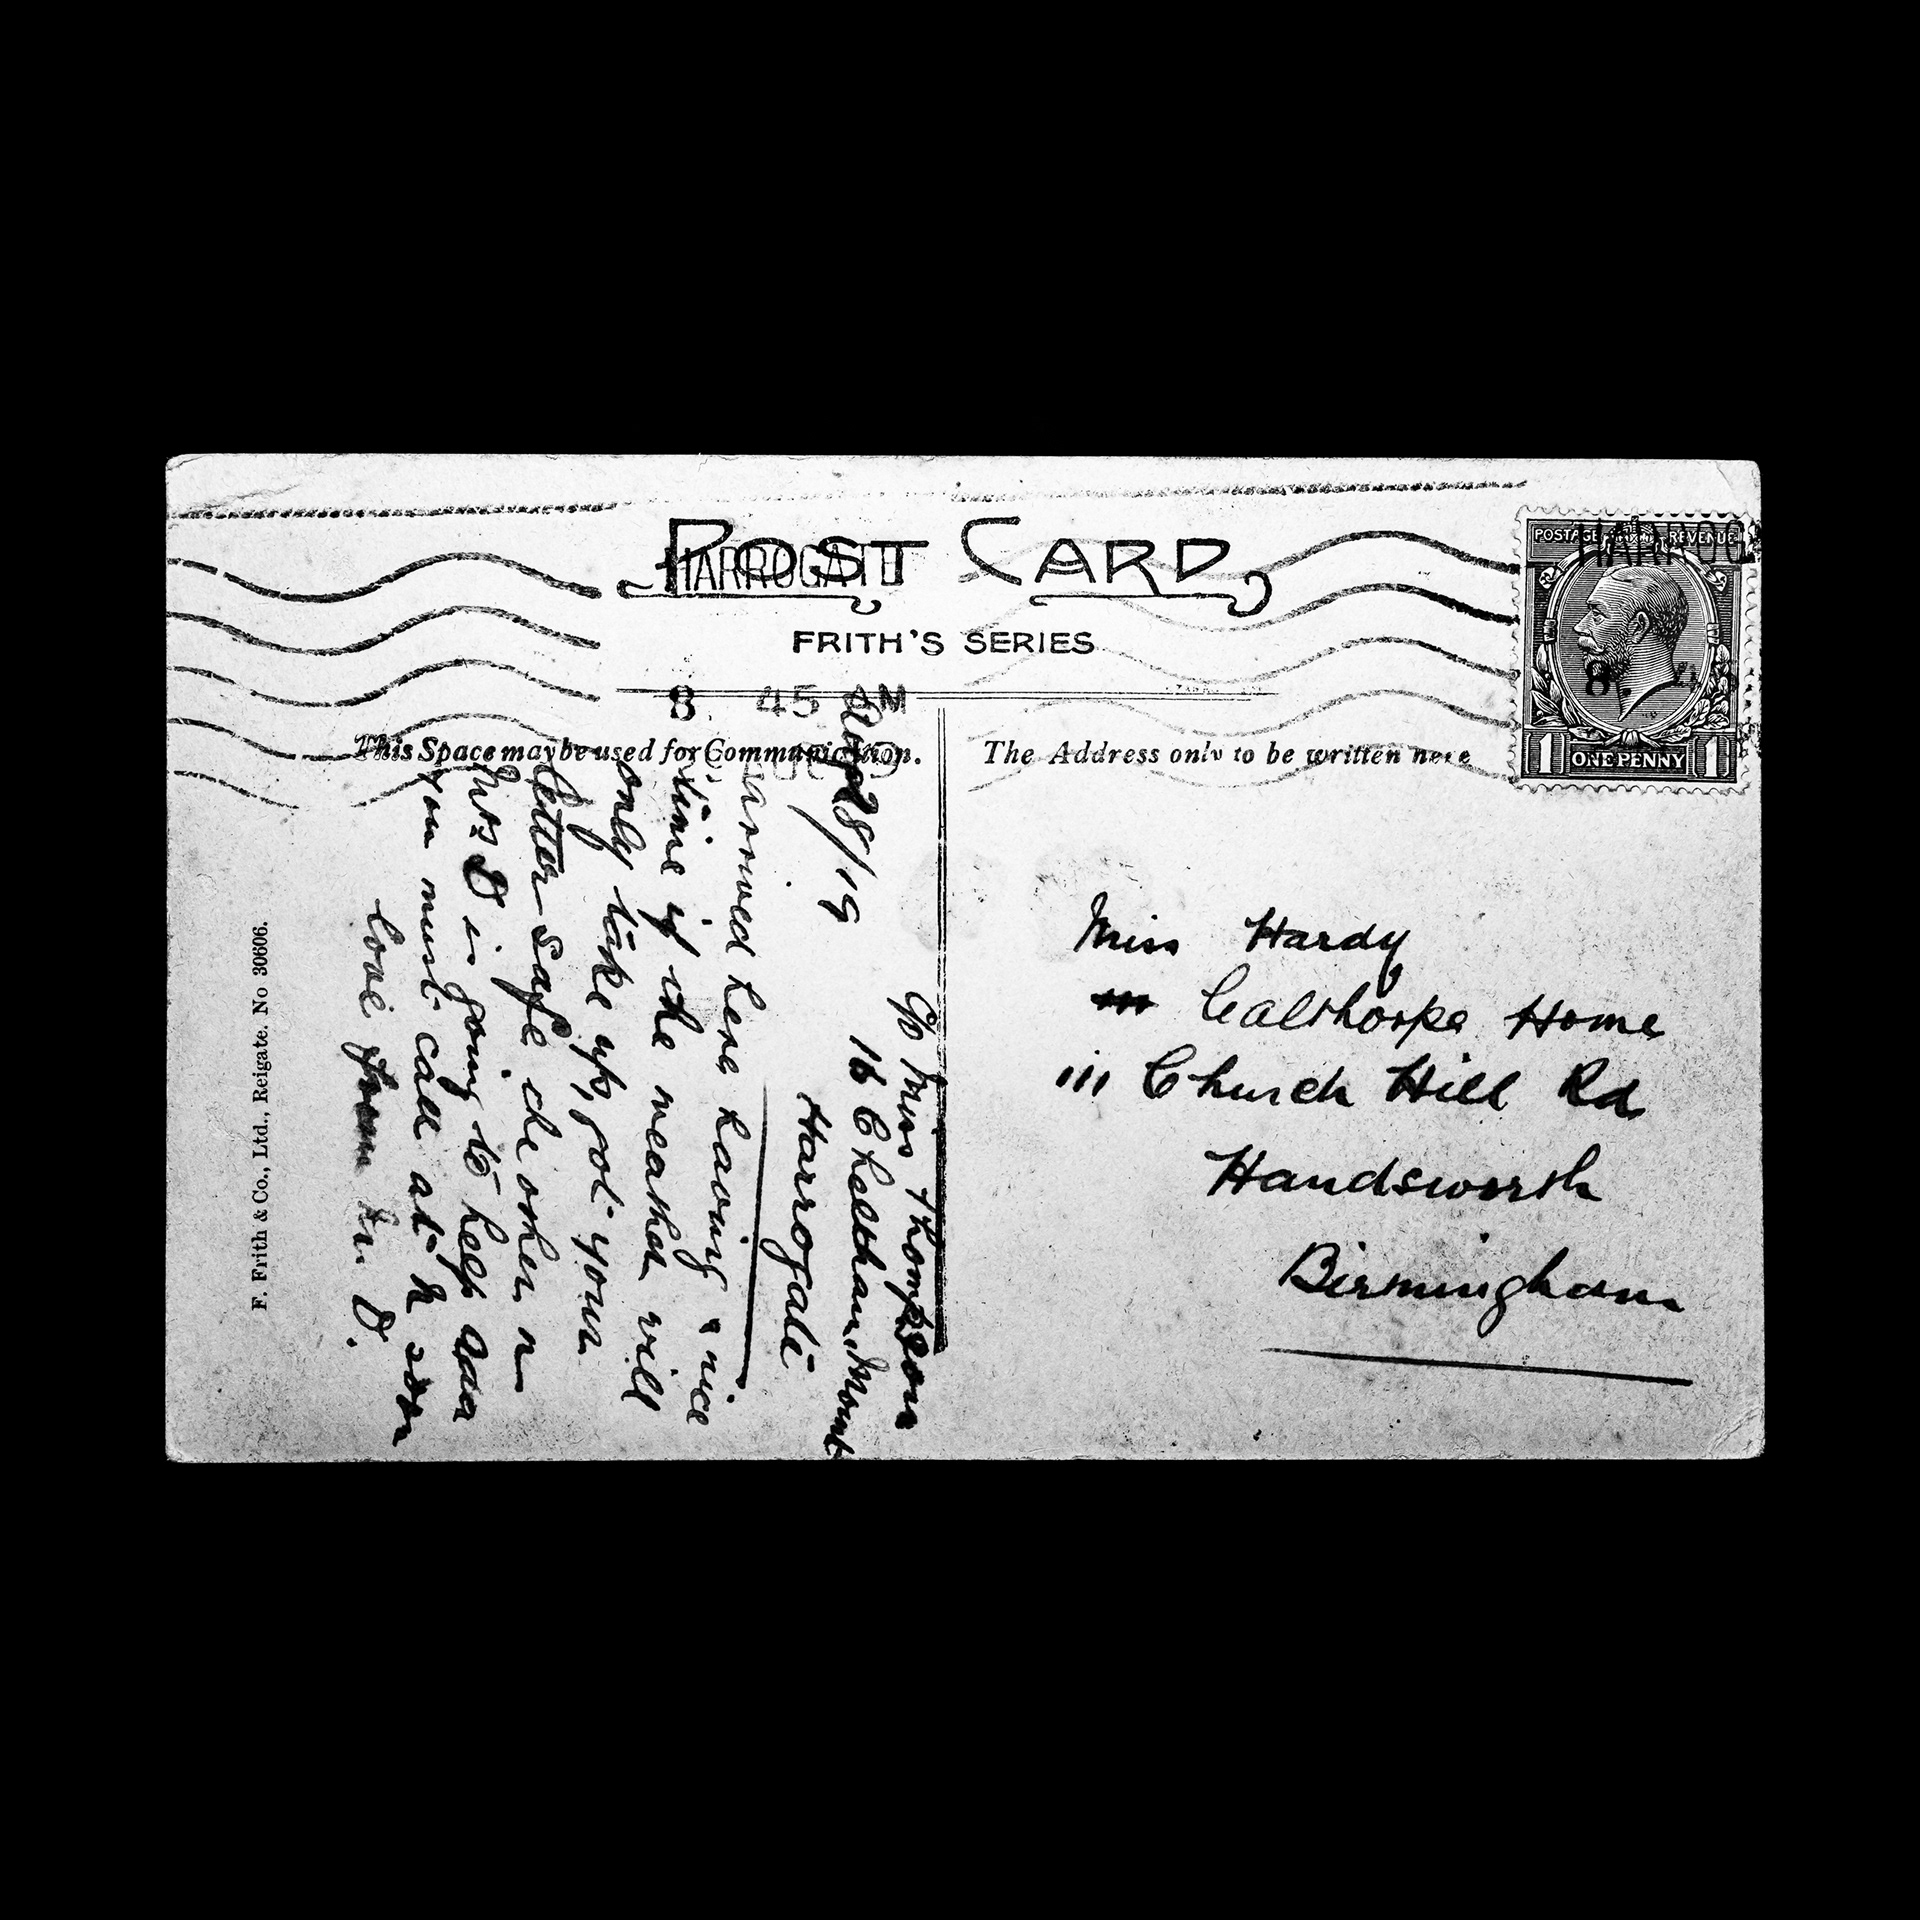 POST CARD
HARROGATE
FRITH'S SERIES
8. 45 AM
This Space may be used for Communication.
The Address only to be written here
POSTAGE REVENUE
HARROG
8. 4
1 ONE PENNY 1
Miss Hardy
Calthorpe Home
111 Church Hill Rd
Handsworth
Birmingham
C/o Miss Thompson
16 Cheltham Mount
Harrogate
Aug 28/19
arrived here having a nice
time if the weather will
only take up, got your
letter safe the other n
Mrs D is going to keep
you must call at soon
love from D.
F. Frith & Co., Ltd., Reigate. No 30606.